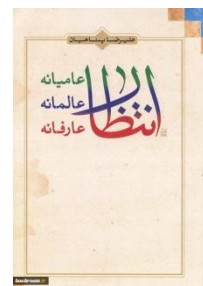 علیرضا پناهیان
انتظار
عامیانه
عالمانه
عارفانه